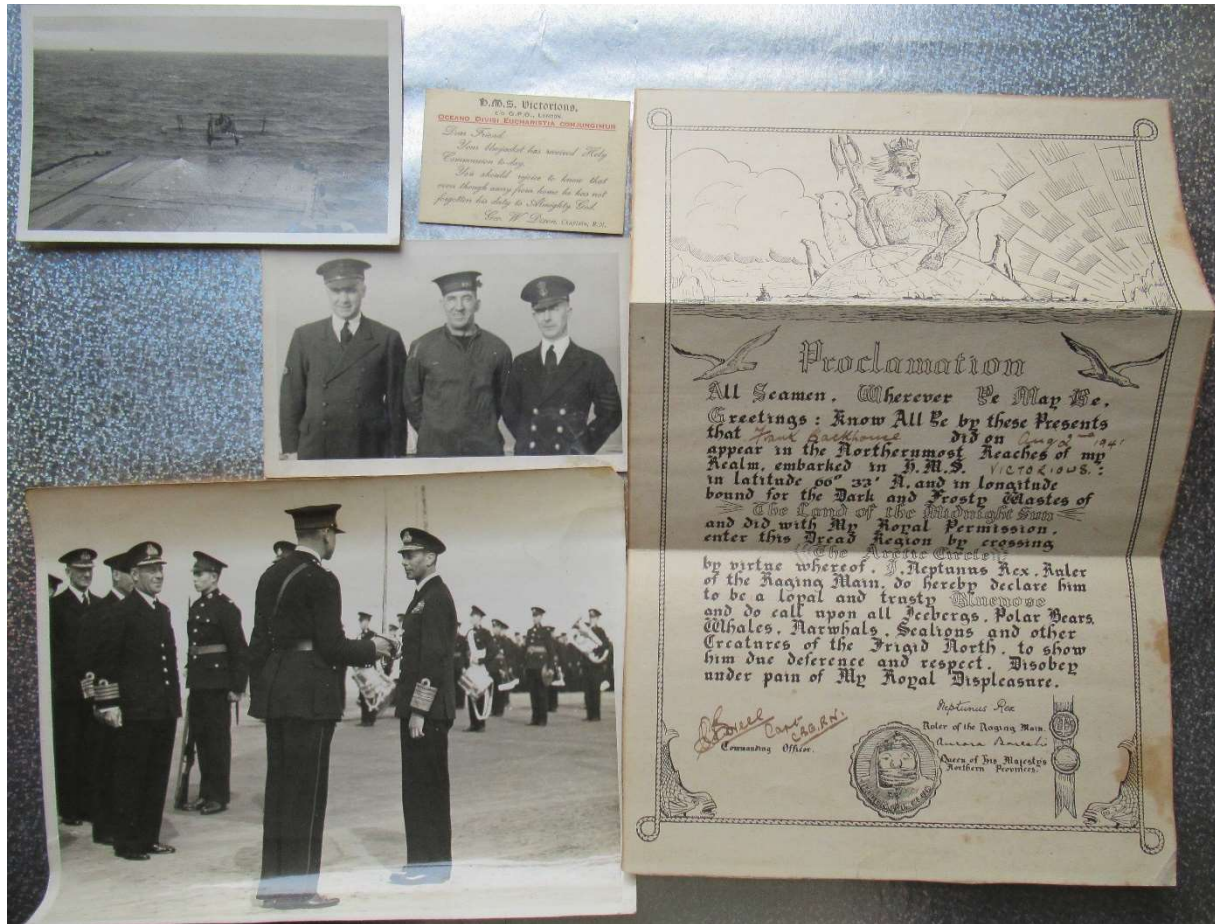 H.M.S. Victorious,
c/o G.P.O., LONDON.
OCEANO DIVISI EUCHARISTIA CONJUNGIMUR
Dear Friend,
Your bluejacket has received Holy
Communion to-day.
You should rejoice to know that
even though away from home he has not
forgotten his duty to Almighty God.
Geo. W. Dixon, CHAPLAIN, R.N.
Proclamation
All Seamen, Wherever Ye May Be,
Greetings: Know All Ye by these Presents
that Frank Backhouse did on Aug 2nd 1941
appear in the Northernmost Reaches of my
Realm, embarked in H.M.S. VICTORIOUS:
in latitude 66° 33' N, and in longitude
bound for the Dark and Frosty Wastes of
The Land of the Midnight Sun
and did with My Royal Permission,
enter this Dread Region by crossing
The Arctic Circle
by virtue whereof, I, Neptunus Rex, Ruler
of the Raging Main, do hereby declare him
to be a loyal and trusty Bluenose
and do call upon all Icebergs, Polar Bears,
Whales, Narwhals, Sealions and other
Creatures of the Frigid North, to show
him due deference and respect. Disobey
under pain of My Royal Displeasure.
Capt
R.N.
Commanding Officer.
Neptunus Rex
Ruler of the Raging Main.
Aurora Borealis
Queen of His Majesty's
Northern Provinces.